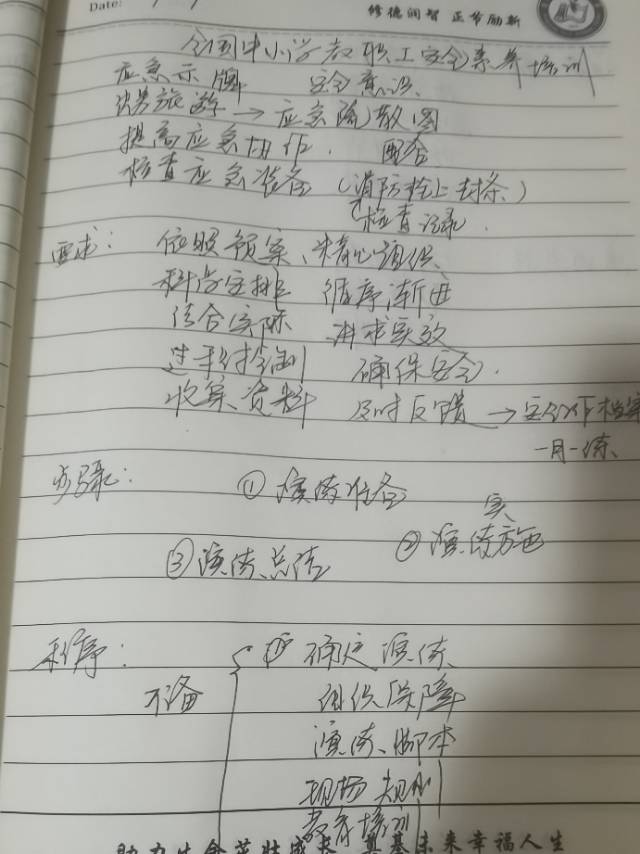 Date:
修德润智 正节励新
全国中小学教职工安全素养培训
应急示牌 安全意识、
出旅游 → 应急疏散图
提高应急协作. 配合
核查应急准备 (消防栓上封条)
(检查记录.
要求: 依照预案、精心组织、
科学安排 循序渐进
结合实际 讲求实效
确保安全.
收案资料 及时反馈 → 安全工作档案
一月一练、
步骤: ① 演练准备
实
② 演练施
③ 演练总结
程序: 确定演练
准备 组织保障
演练、脚本
现场规则
教育培训
助力生命茁壮成长 奠基未来幸福人生